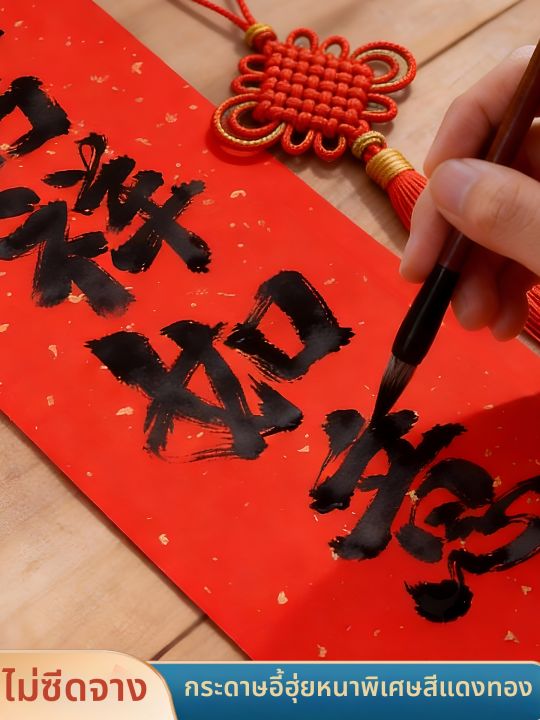 祥如意
ไม่ซีดจาง
กระดาษอี้ฮุ่ยหนาพิเศษสีแดงทอง